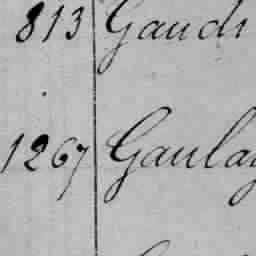 813 Gauds
1267 Gaulay